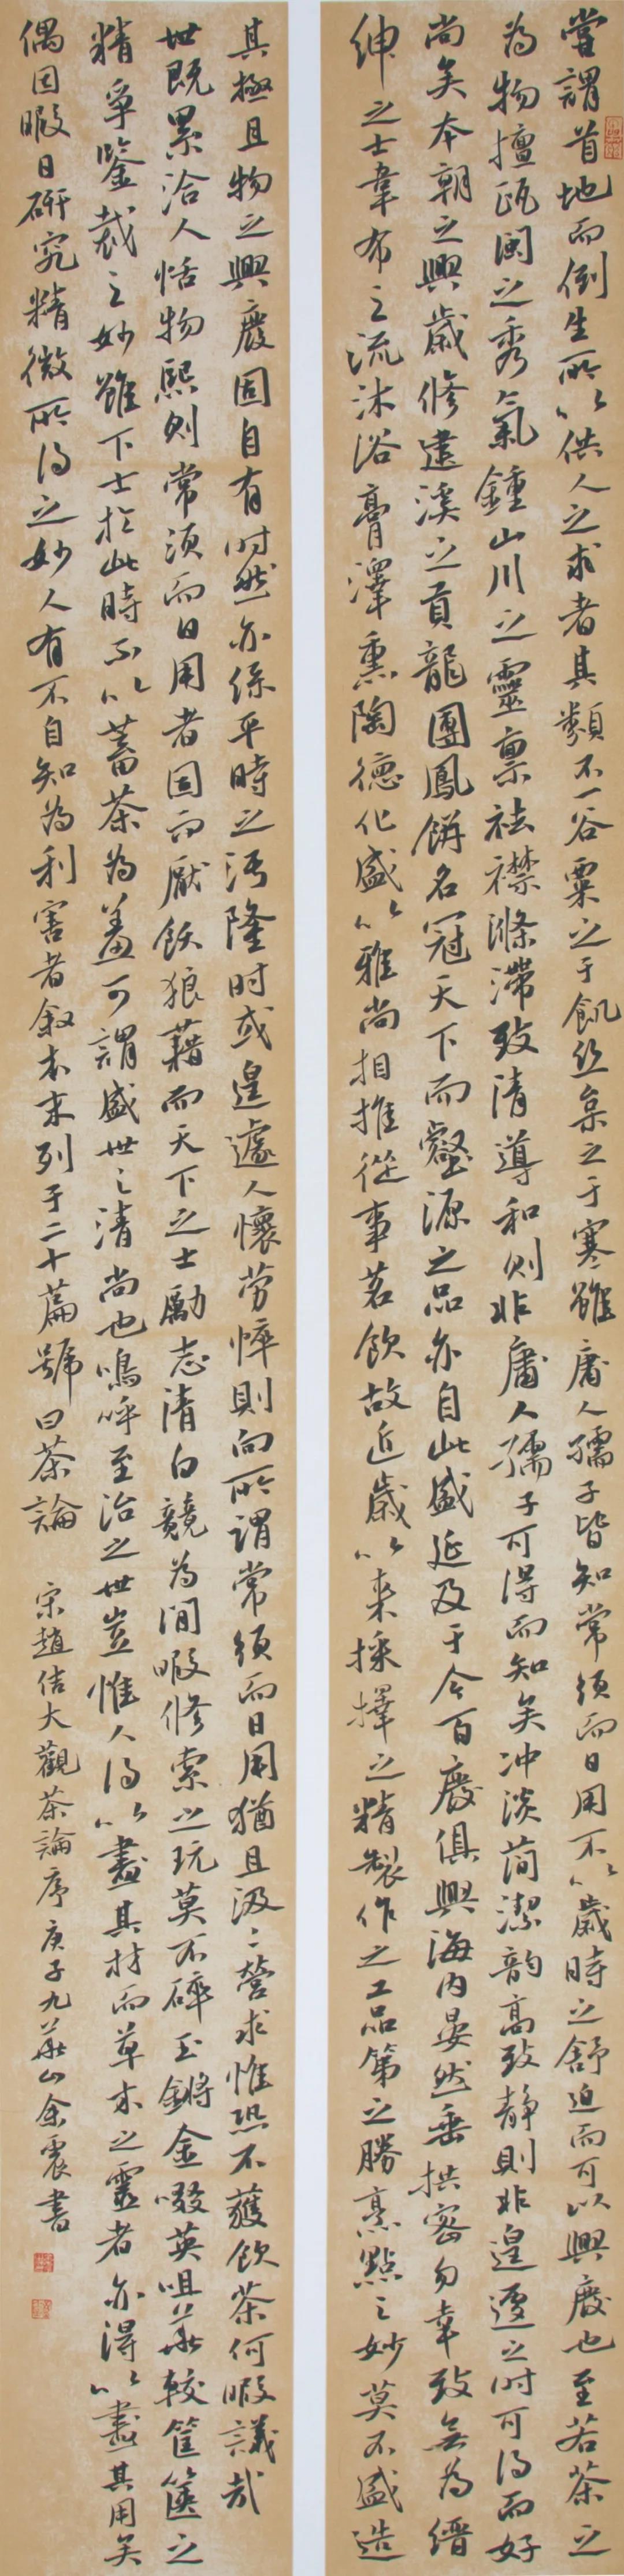 嘗謂首地而倒生所以供人之求者其類不一谷粟之于飢丝枲之于寒雖庸人孺子皆知常須而日用不以歲時之舒迫而可以興廢也至若茶之
為物擅瓯闽之秀氣鍾山川之靈禀祛襟滌滯致清導和则非庸人孺子可得而知矣冲淡简潔韵高致静則非遑遽之时可得而好
尚矣本朝之興歲修建溪之貢龍團鳳餅名冠天下而壑源之品亦自此盛延及于今百廢俱興海内晏然垂拱密勿幸致無為缙
紳之士韋布之流沐浴膏澤熏陶德化盛以雅尚相推從事茗飲故近歲以来採擇之精製作之工品第之勝烹點之妙莫不盛造
其極且物之興廢固自有时然亦係乎時之污隆时或遑遽人懷劳悴則向所謂常须而日用猶且汲〻營求惟恐不獲飲茶何暇議哉
世既累洽人恬物熙则常須而日用者固而厭飫狼藉而天下之士勵志清白競為閒暇修索之玩莫不碎玉鏘金啜英咀華較筐篋之
精爭鑒裁之妙雖下士於此時不以蓄茶為羞可謂盛世之清尚也嗚呼至治之世豈惟人得以盡其材而草木之靈者亦得以盡其用矣
偶因暇日研究精微所得之妙人有不自知為利害者叙本末列于二十篇號曰茶論 宋趙佶大觀茶論序庚子九華山余震書